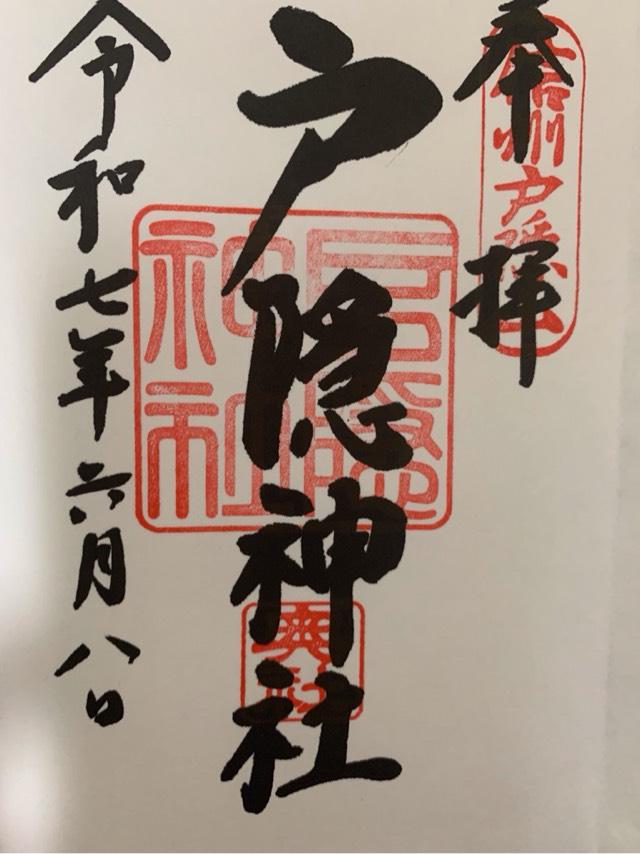 奉拝
信州戸隠山
戸隠神社
戸隠神社
奥社
令和七年六月八日